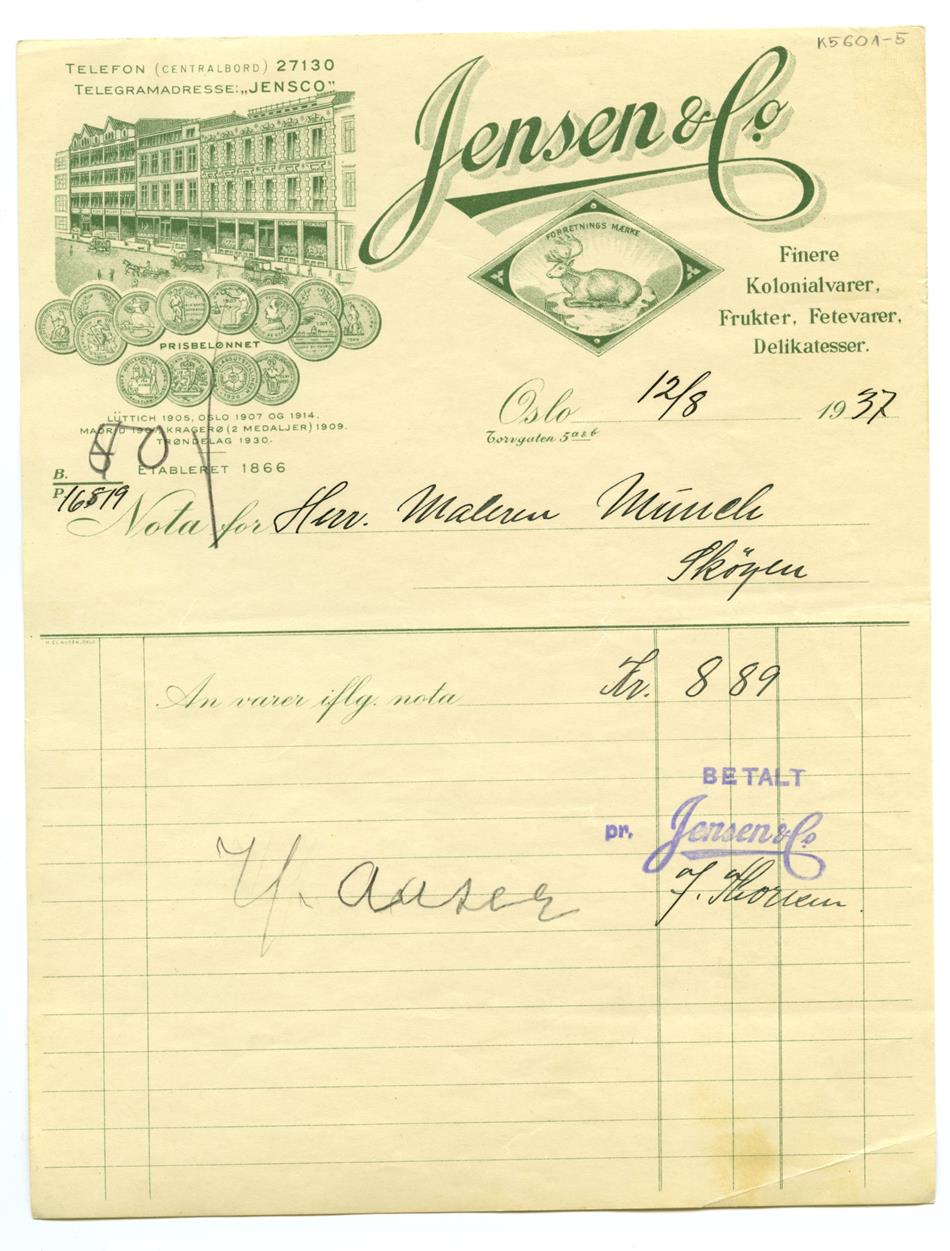 K5601-5
TELEFON (CENTRALBORD) 27130
TELEGRAMADRESSE: „JENSCO”
Jensen & Co
FORRETNINGS MÆRKE
Finere
Kolonialvarer,
Frukter, Fetevarer,
Delikatesser.
PRISBELØNNET
LÜTTICH 1905, OSLO 1907 OG 1914.
MADRID 1907, KRAGERØ (2 MEDALJER) 1909.
TRØNDELAG 1930.
ETABLERET 1866
Oslo 12/8 1937
Torvgaten 5 a & b
80
B.
P. 16819
Nota for Herr. Maleren Münch
Sköyen
H. CLAUSEN, OSLO
An varer iflg. nota Kr. 8 89
BETALT
pr. Jensen & Co